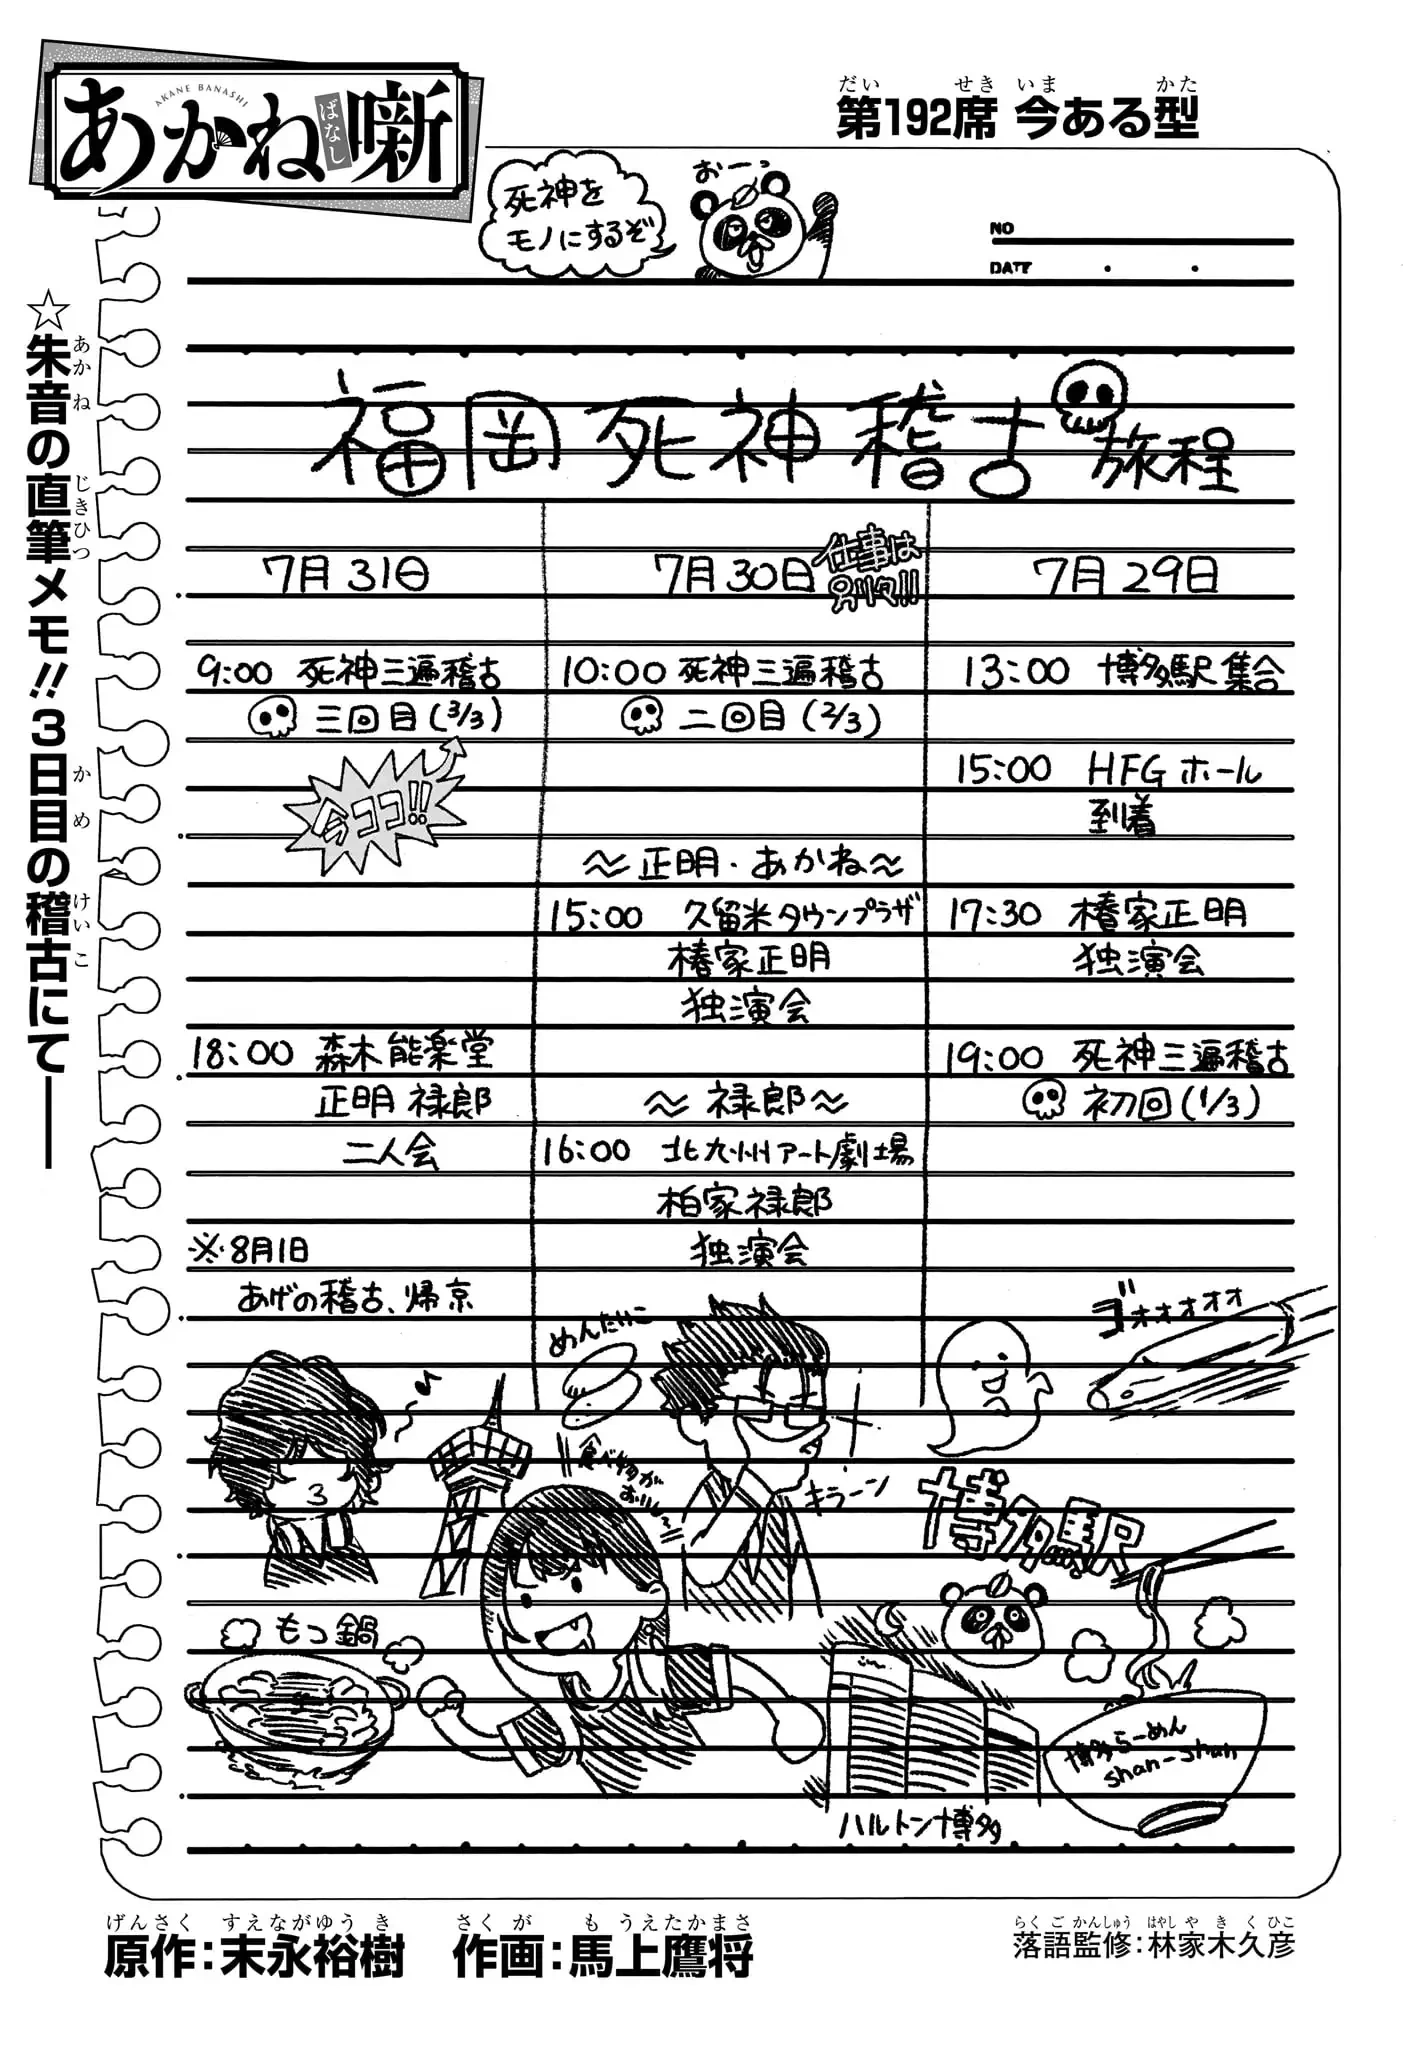 あかね噺
ばなし
AKANE BANASHI
第192席 今ある型
だい せき いま かた
死神を
モノにするぞ
おーっ
NO
DATE
☆朱音の直筆メモ!!3日目の稽古にて――
あかね じきひつ かめ けいこ
福岡死神稽古旅程
7月29日
13:00 博多駅集合
15:00 HFGホール
到着
17:30 椿家正明
独演会
19:00 死神三遍稽古
初回(1/3)
7月30日
仕事は
別々!!
10:00 死神三遍稽古
二回目(2/3)
～正明・あかね～
15:00 久留米タウンプラザ
椿家正明
独演会
～禄郎～
16:00 北九州アート劇場
柏家禄郎
独演会
7月31日
9:00 死神三遍稽古
三回目(3/3)
今ココ!!
18:00 森木能楽堂
正明 禄郎
二人会
※8月1日
あげの稽古、帰京
ゴォォォォォ
めんたいこ
食べ物が
おいしー
キラーン
博多駅
もつ鍋
博多らーめん
shan-shan
ハルトン博多
原作:末永裕樹 作画:馬上鷹将
げんさく すえながゆうき さくが もうえたかまさ
落語監修:林家木久彦
らくごかんしゅう はやしやきくひこ